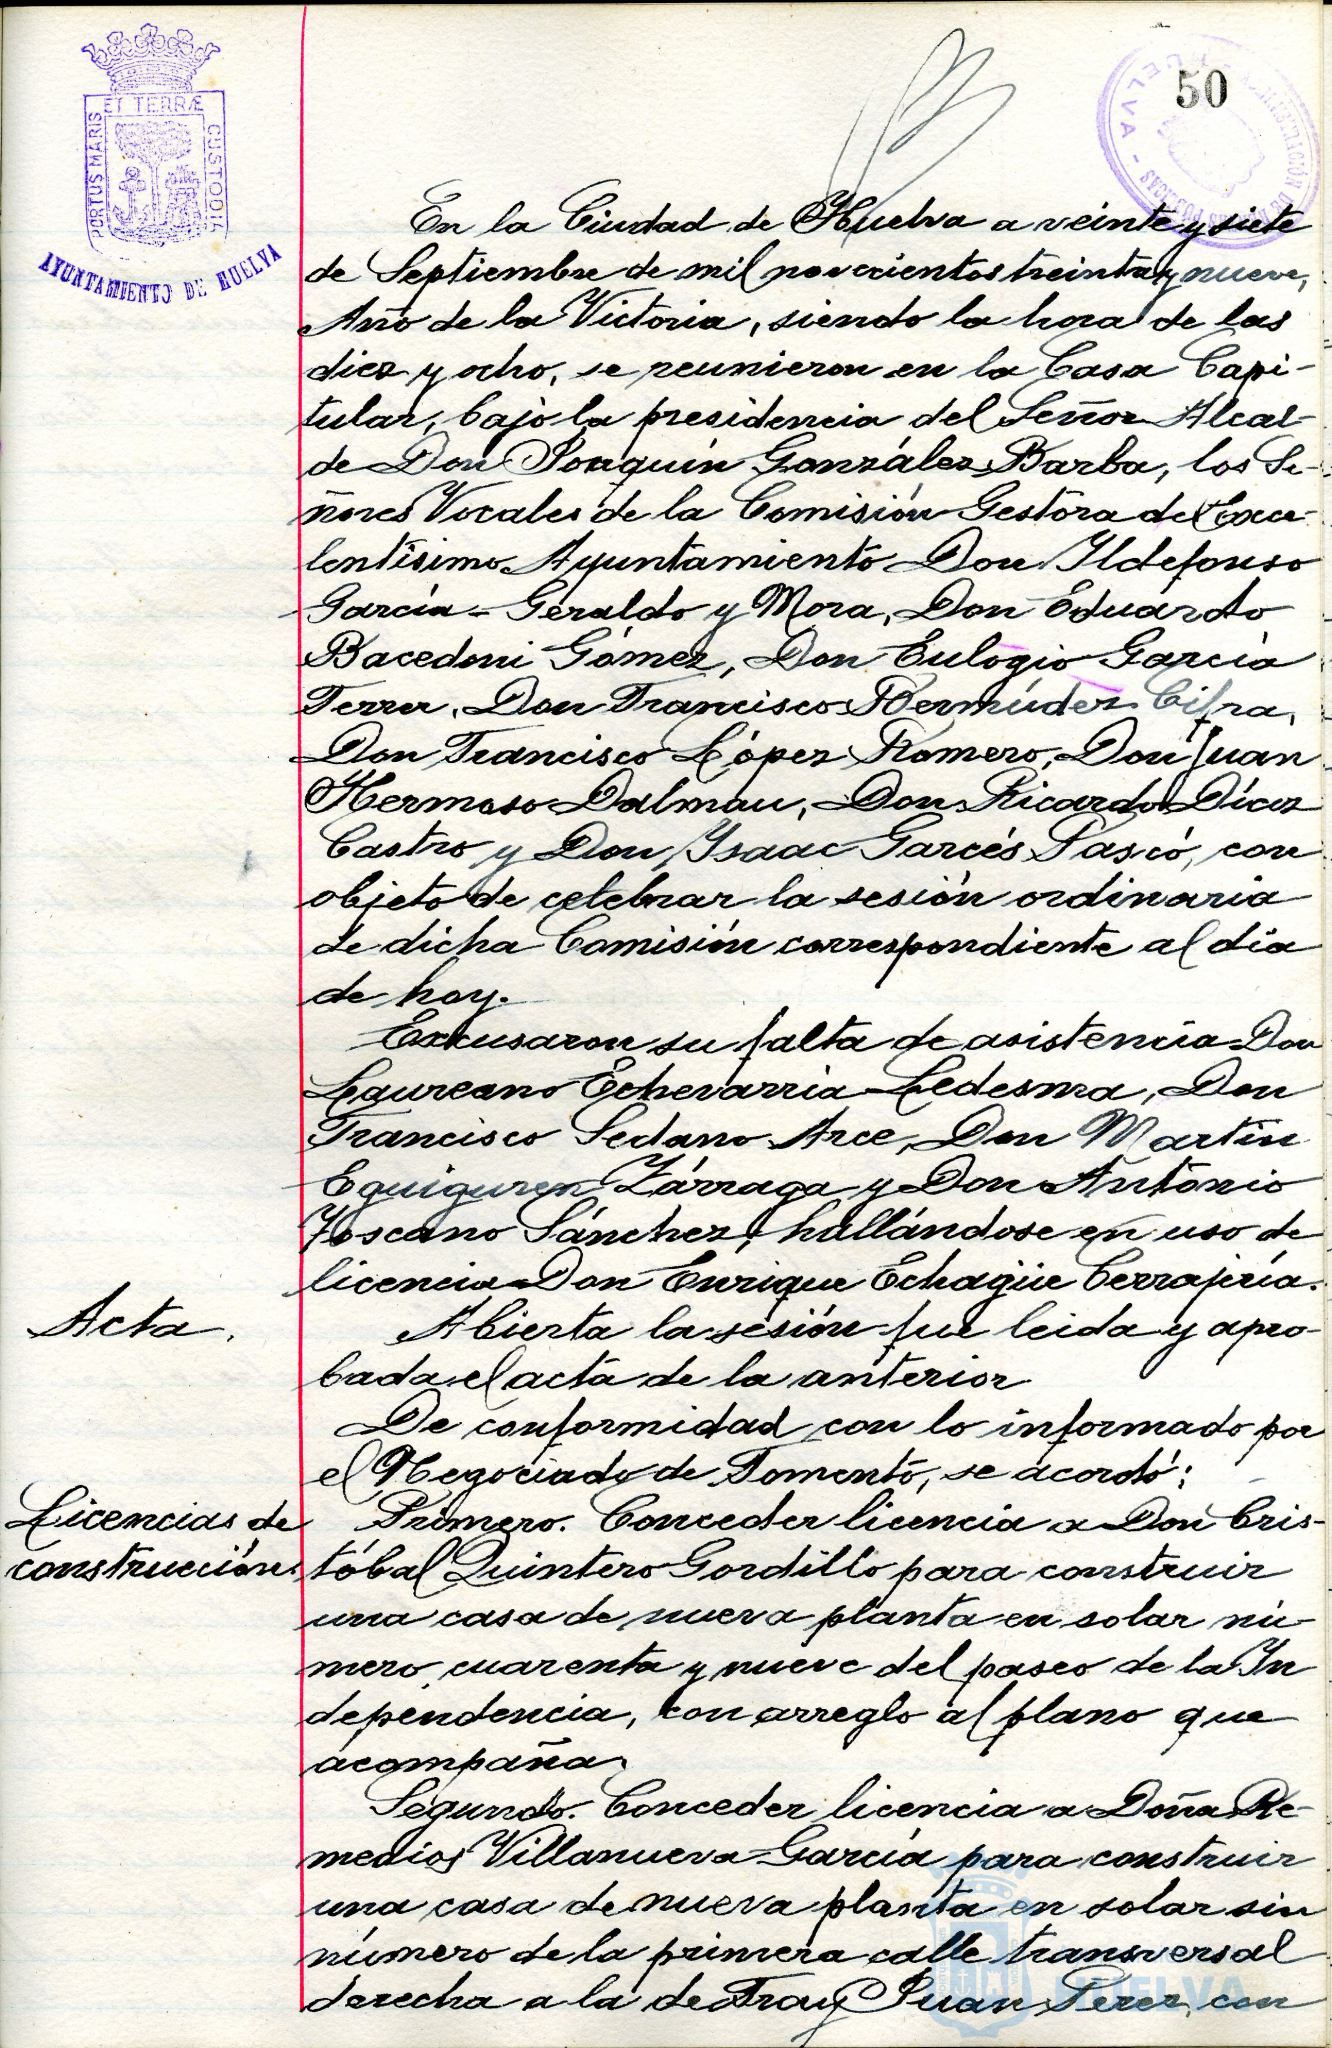 PORTUS MARIS ET TERRÆ CUSTODIA
AYUNTAMIENTO DE HUELVA
50
En la Ciudad de Huelva a veinte y siete
de Septiembre de mil novecientos treinta y nueve,
Año de la Victoria, siendo la hora de las
diez y ocho, se reunieron en la Casa Capi-
tular, bajo la presidencia del Señor Alcal-
de Don Joaquín González Barba, los Se-
ñores Vocales de la Comisión Gestora del Exce-
lentísimo Ayuntamiento Don Ildefonso
García-Geraldo y Mora, Don Eduardo
Bacedoni Gómez, Don Eulogio García
Ferrer, Don Francisco Bermúdez Cifra,
Don Francisco López Romero, Don Juan
Hermoso Dalmau, Don Ricardo Díez
Castro y Don Isaac Garcés Pascó, con
objeto de celebrar la sesión ordinaria
de dicha Comisión correspondiente al día
de hoy.
Excusaron su falta de asistencia Don
Laureano Echevarría Ledesma, Don
Francisco Sedano Arce, Don Martín
Eguiguren Zárraga y Don Antonio
Toscano Sánchez, hallándose en uso de
licencia Don Enrique Echagüe Cerrajería.
Acta.
Abierta la sesión fue leida y apro-
bada el acta de la anterior
De conformidad con lo informado por
el Negociado de Fomento, se acordó:
Licencias de
construcción.
Primero. Conceder licencia a Don Cris-
tóbal Quintero Gordillo para construir
una casa de nueva planta en solar nú-
mero cuarenta y nueve del paseo de la In
dependencia, con arreglo al plano que
acompaña.
Segundo. Conceder licencia a Doña Re-
medios Villanueva García para construir
una casa de nueva planta en solar sin
número de la primera calle transversal
derecha a la de Fray Juan Perez, con
HUELVA